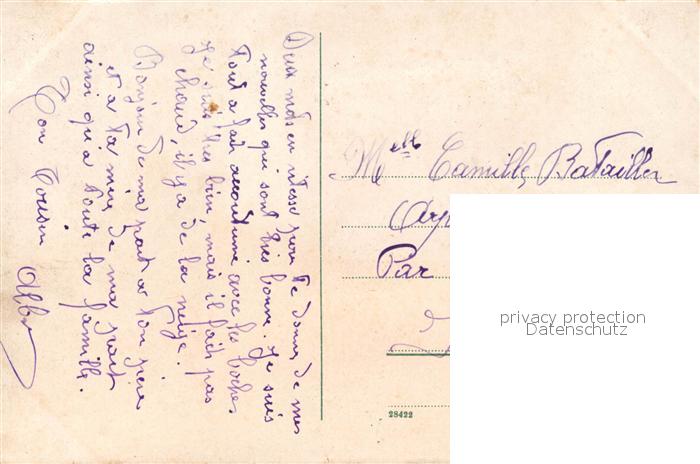 Deux mots en vitesse pour te donner de mes
nouvelles qui sont très bonne. Je suis
tout a fait accoutumé avec les boches
Je suis très bien, mais il fait pas
chaud, il y a de la neige.
Bonjour de ma part a ton père
et a ta mère de ma part
ainsi qu'a toute la famille.
Ton Cousin Albert
Melle Camille Batailler
Par
privacy protection
Datenschutz
28422